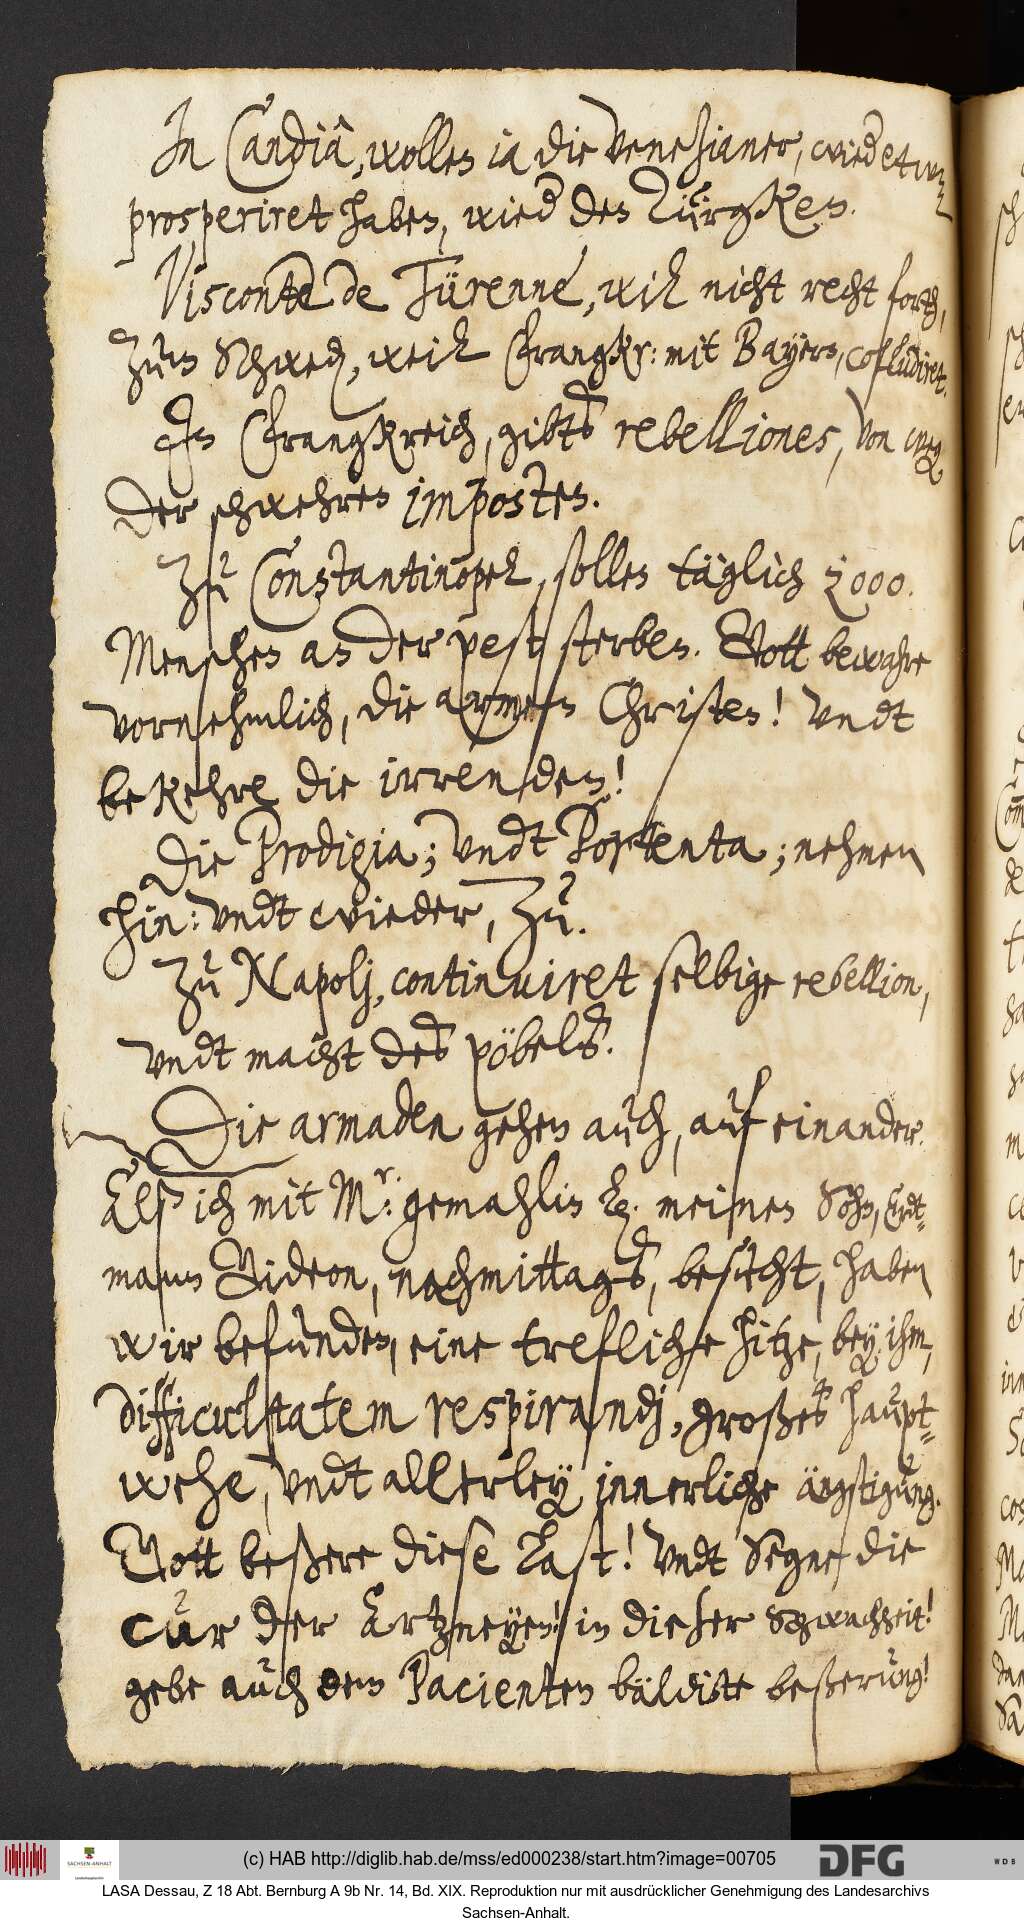 In Candiâ, wollen ia die Venezianer, wied etwaz
prosperiret haben, wied den Türgken.
Visconte de Türenne, will nicht recht forth,
zun Schwed, weil Frangkr: mit Bayern, colludiret.
In Frangkreich, gibts rebelliones, von weg
der schwehren imposten.
Zu Constantinopel, sollen täglich 2000.
Menschen an der pest sterben. Gott bewahre
vornehmlich, die armen Christen! Vndt
bekehre die irrenden!
Die Prodigia; vndt Portenta; nehmen
hin: vndt wieder, zu.
Zu Napolj, continuiret selbige rebellion,
vndt macht des pöbels.
Die armaden gehen auch, auf einander.
Alß ich mit Mr: gemahlin h. meinen Sohn, Erdt=
mann Gideon, nachmittags, besucht, haben
wir befunden, eine trefliche hitze, bey ihm,
difficultatem respirandj, großes haupt=
wehe, vndt allerley innerliche ängstigung.
Gott beßere diese Last! Vndt Segne die
cur der Artzneyen! in dieser schwachheit!
gebe auch dem Pacienten bäldiste beßerung!
(c) HAB http://diglib.hab.de/mss/ed000238/start.htm?image=00705
SACHSEN-ANHALT
DFG
WDB
LASA Dessau, Z 18 Abt. Bernburg A 9b Nr. 14, Bd. XIX. Reproduktion nur mit ausdrücklicher Genehmigung des Landesarchivs
Sachsen-Anhalt.